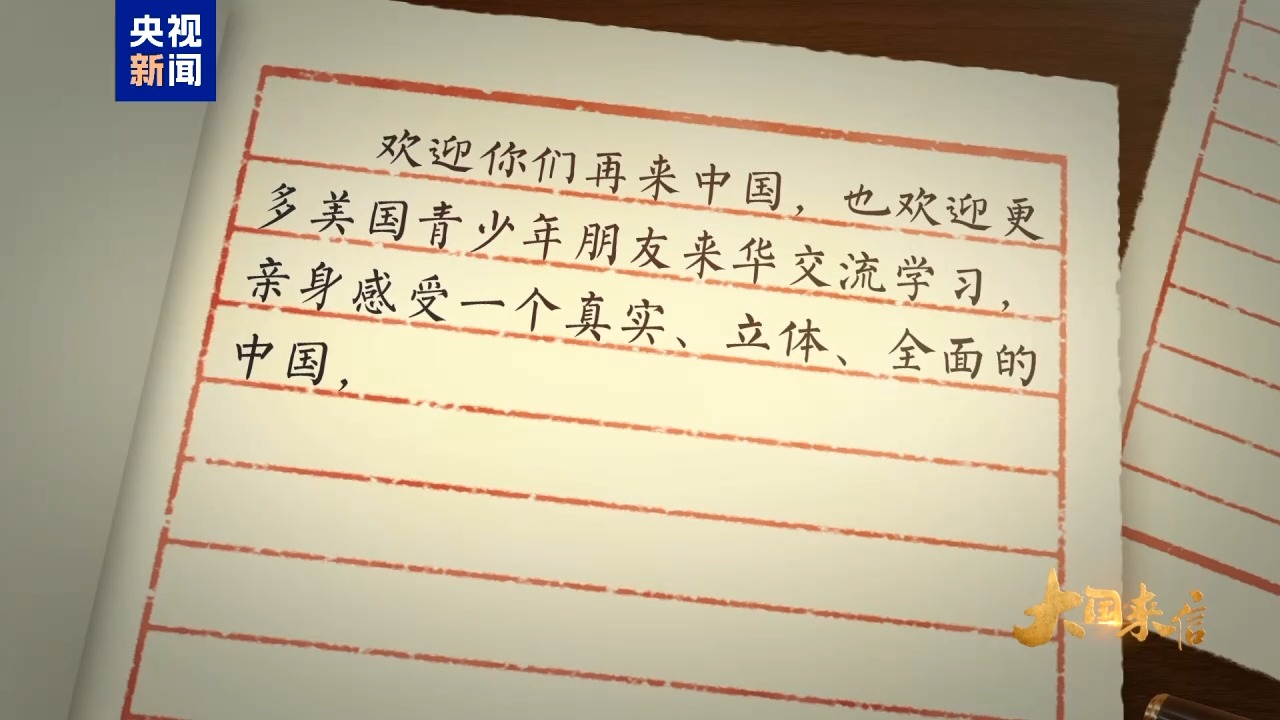 央视
新闻
欢迎你们再来中国，也欢迎更
多美国青少年朋友来华交流学习，
亲身感受一个真实、立体、全面的
中国，
大国来信